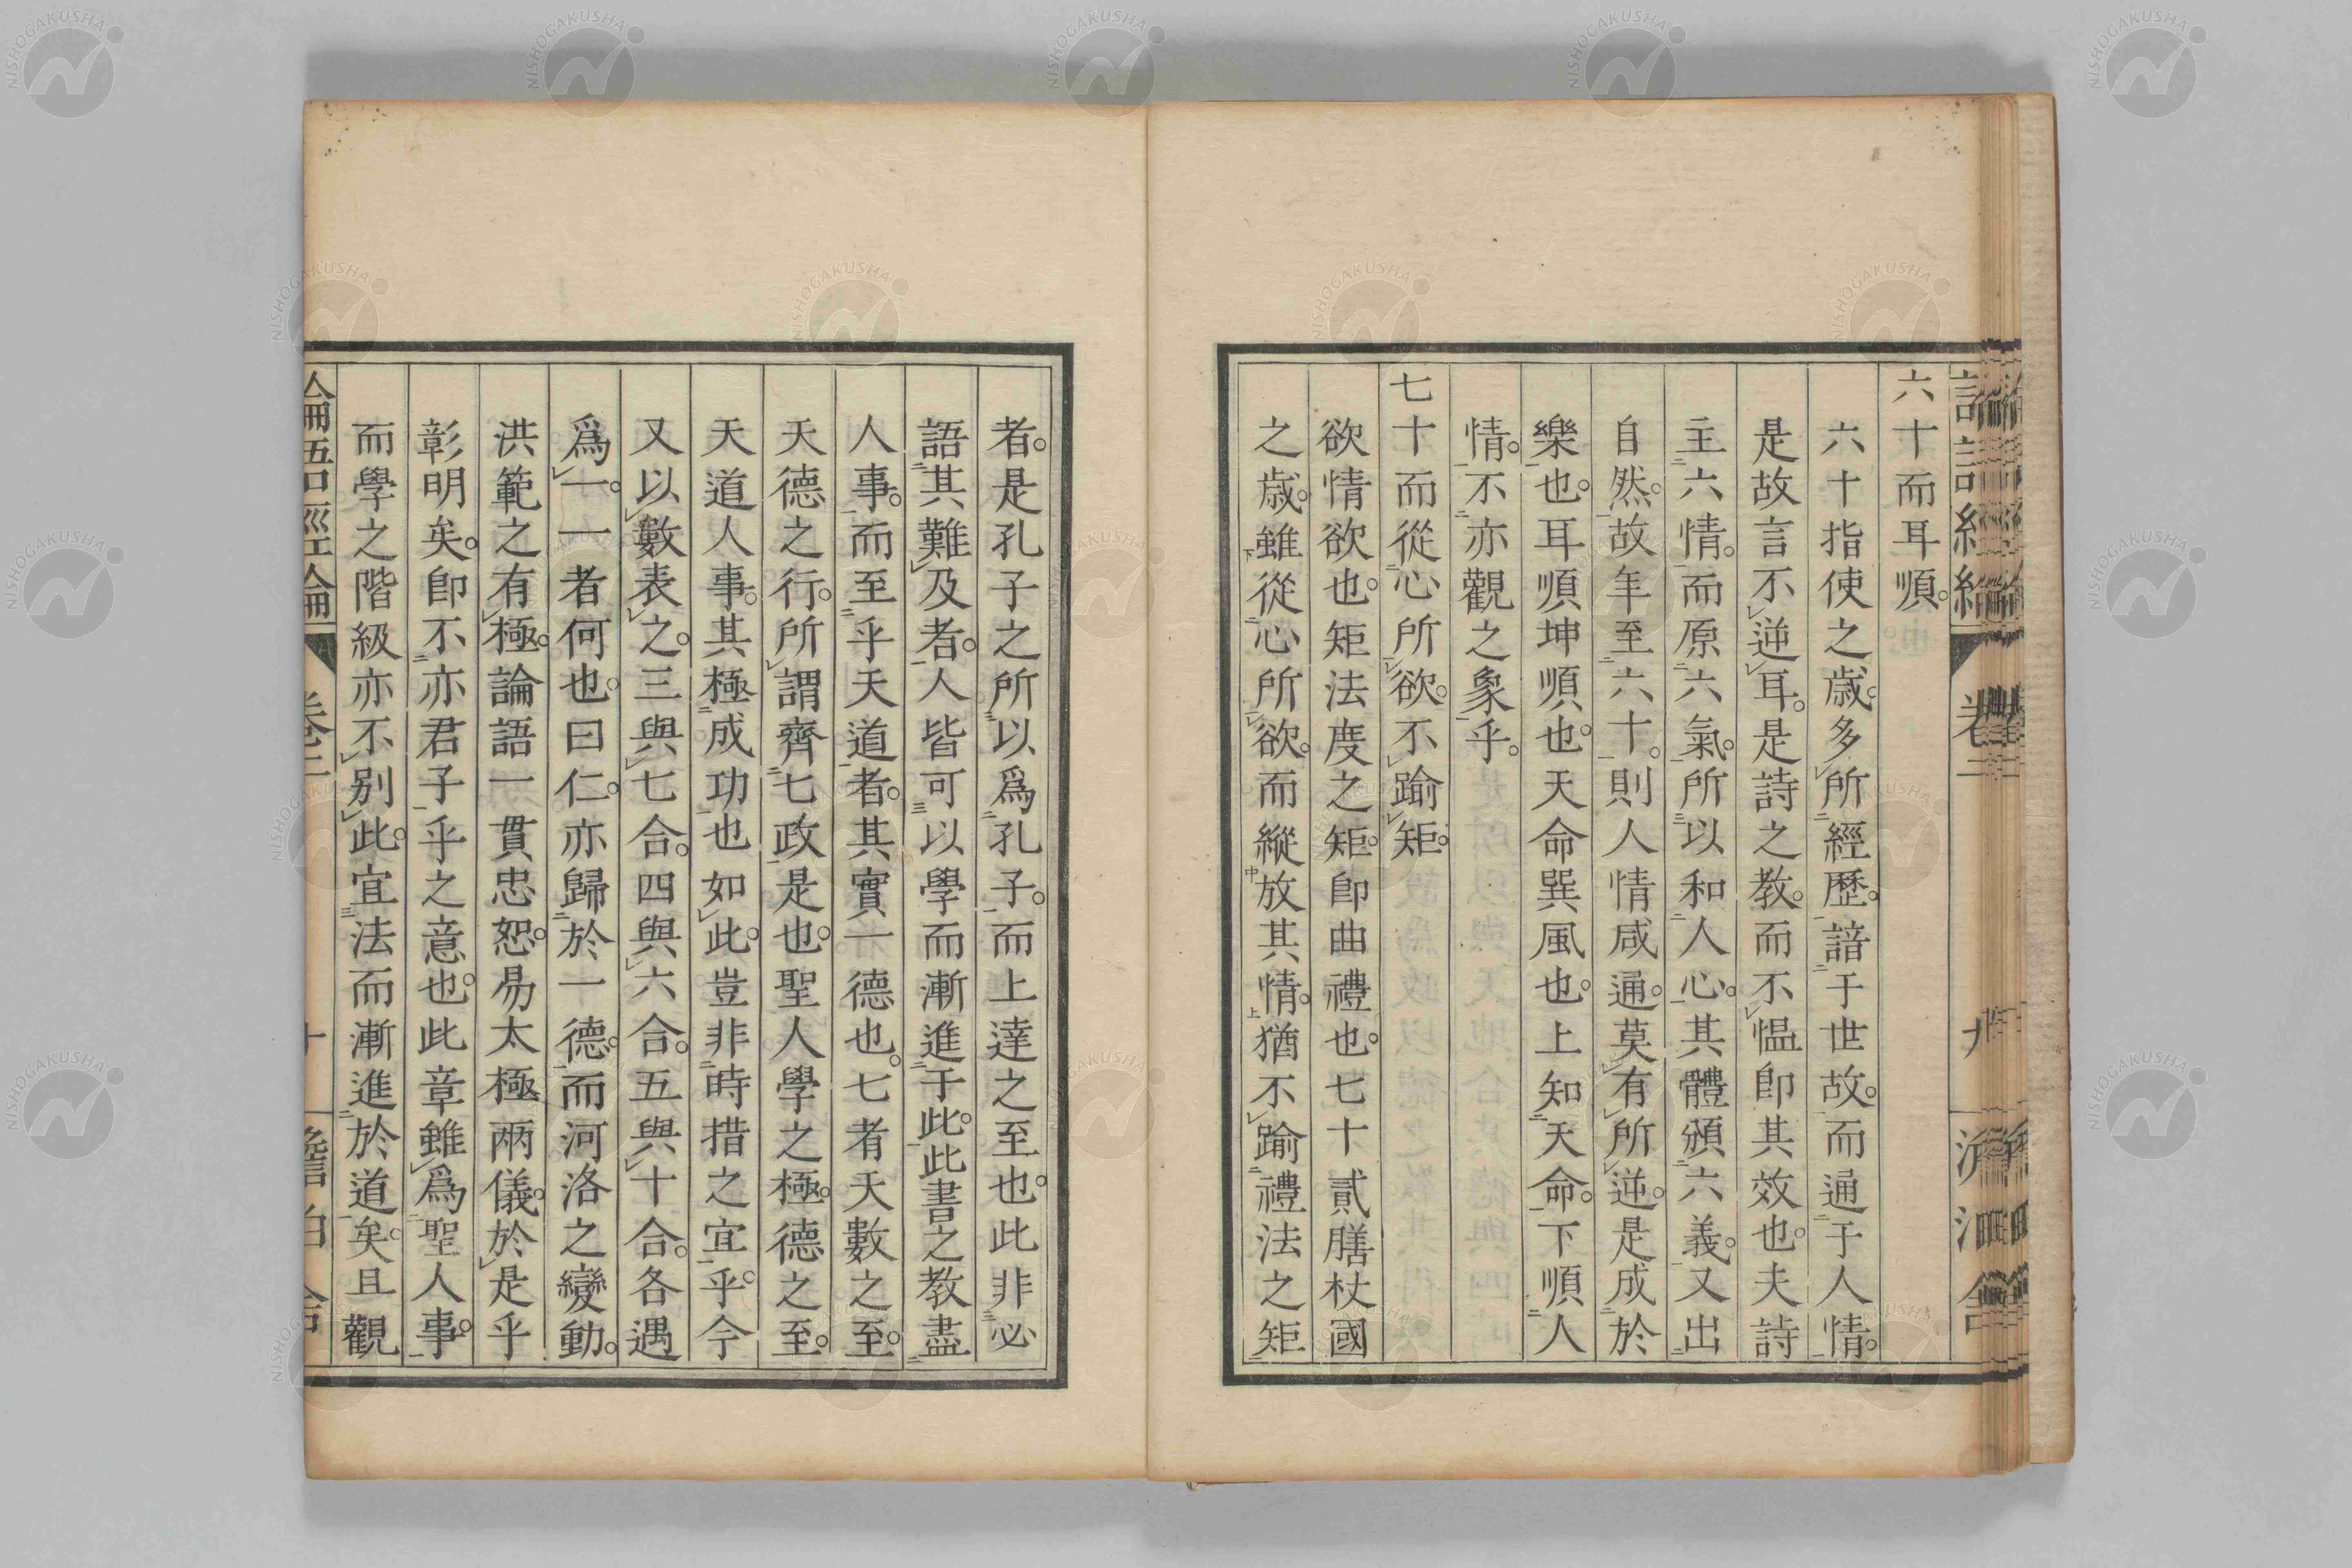 六十而耳順。
六十指使之歲。多所經歷。諳于世故。而通于人情。
是故言不逆耳。是詩之教。而不慍卽其效也。夫詩
主六情。而原六氣。所以和人心。其體頒六義。又出
自然。故年至六十。則人情咸通。莫有所逆。是成於
樂也。耳順坤順也。天命巽風也。上知天命。下順人
情。不亦觀之象乎。
七十而從心所欲。不踰矩。
欲情欲也。矩法度之矩。卽曲禮也。七十貳膳杖國
之歲。雖從心所欲。而縱放其情。猶不踰禮法之矩
者。是孔子之所以爲孔子。而上達之至也。此非必
語其難及者。人皆可以學而漸進于此。此書之教盡
人事。而至乎天道者。其實一德也。七者天數之至。
天德之行。所謂齊七政是也。聖人學之極。德之至。
天道人事。其極成功也如此。豈非時措之宜乎。今
又以數表之。三與七合。四與六合。五與十合。各遇
爲一。一者何也。曰仁。亦歸於一德。而河洛之變動。
洪範之有極。論語一貫忠恕。易太極兩儀。於是乎
彰明矣。卽不亦君子乎之意也。此章雖爲聖人事。
而學之階級亦不別此。宜法而漸進於道矣。且觀
論語經論 卷二 十